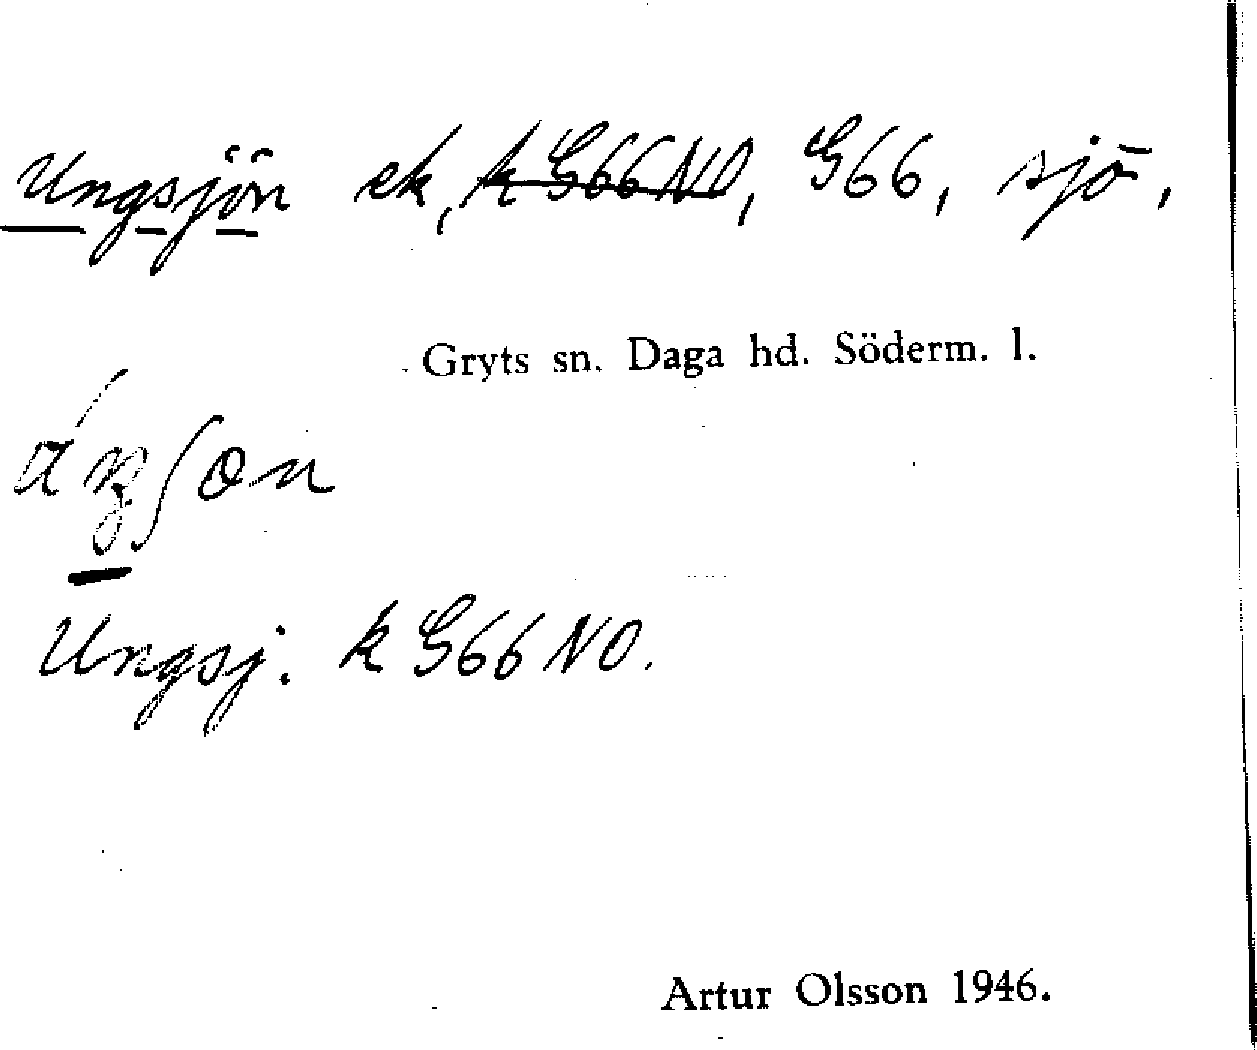 Ungsjön ek, k G66 NO, G66, sjö,
Gryts sn. Daga hd. Söderm. l.
Ungsj. k G66 NO.
Artur Olsson 1946.